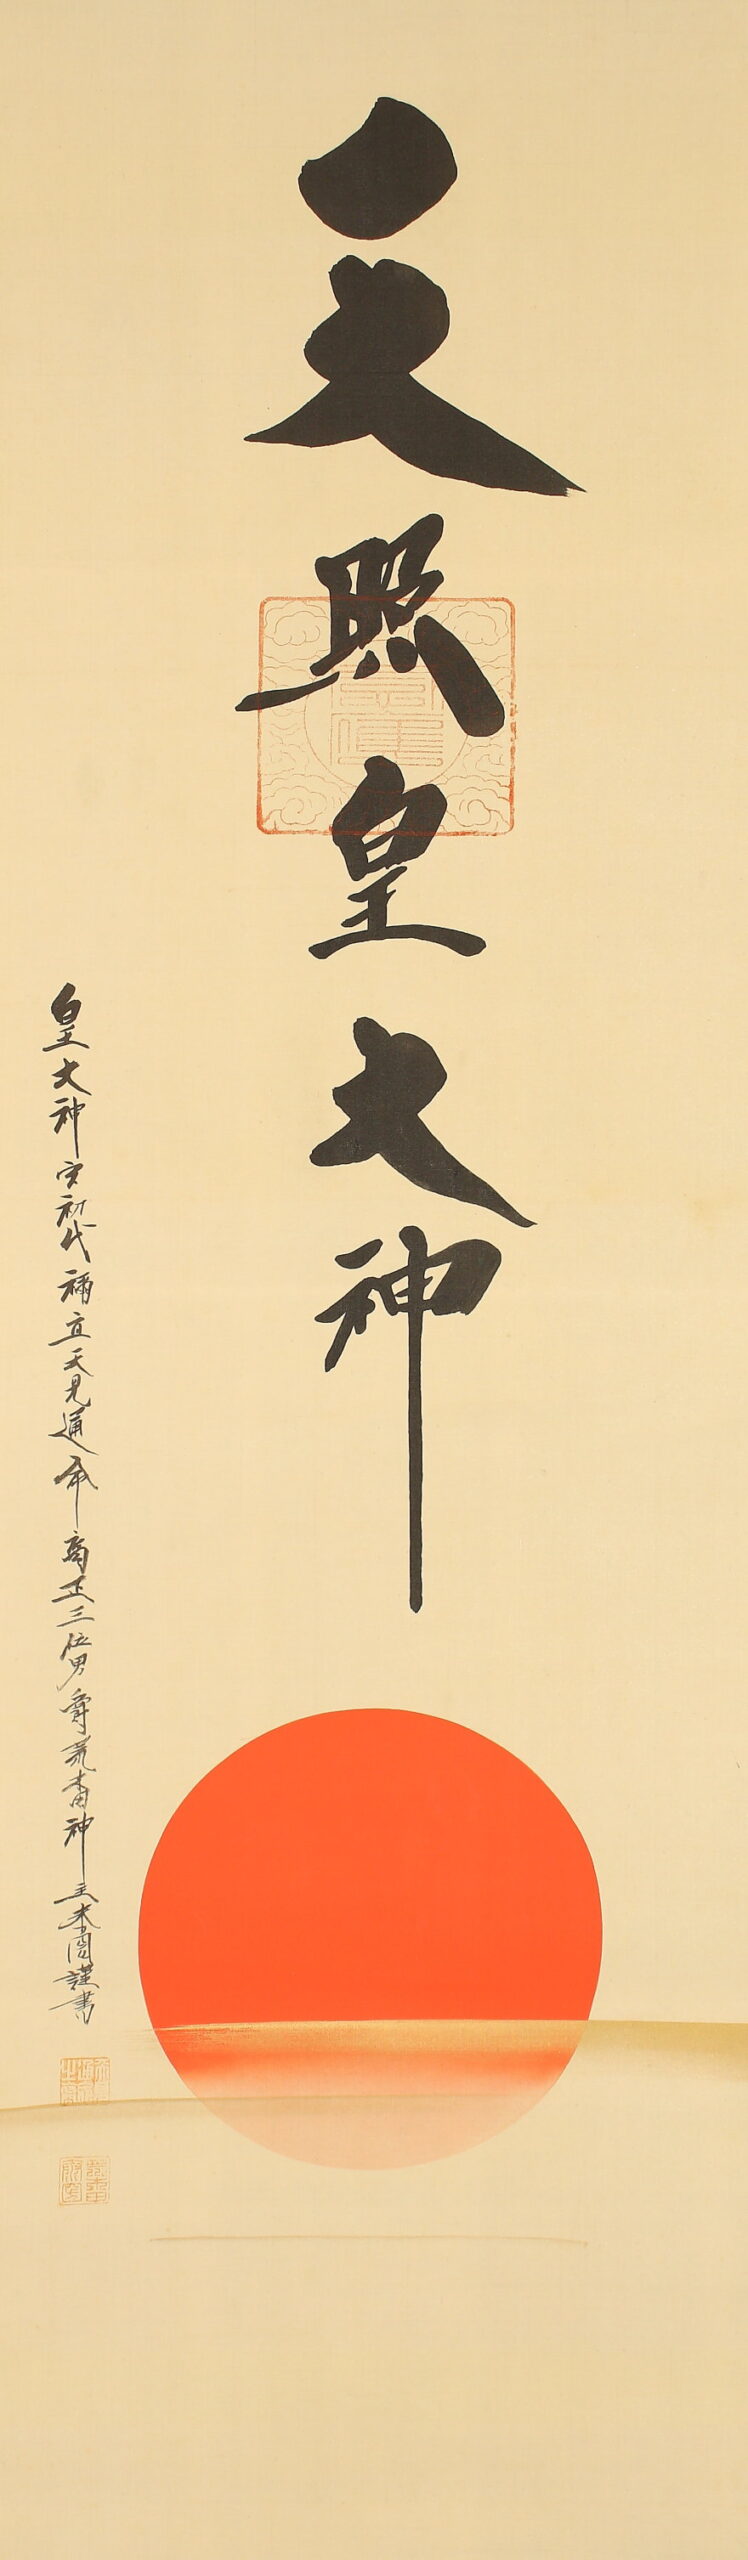 天照皇大神
皇大神宮初代禰宜天見通命裔正三位男爵荒木田神主泰圀謹書